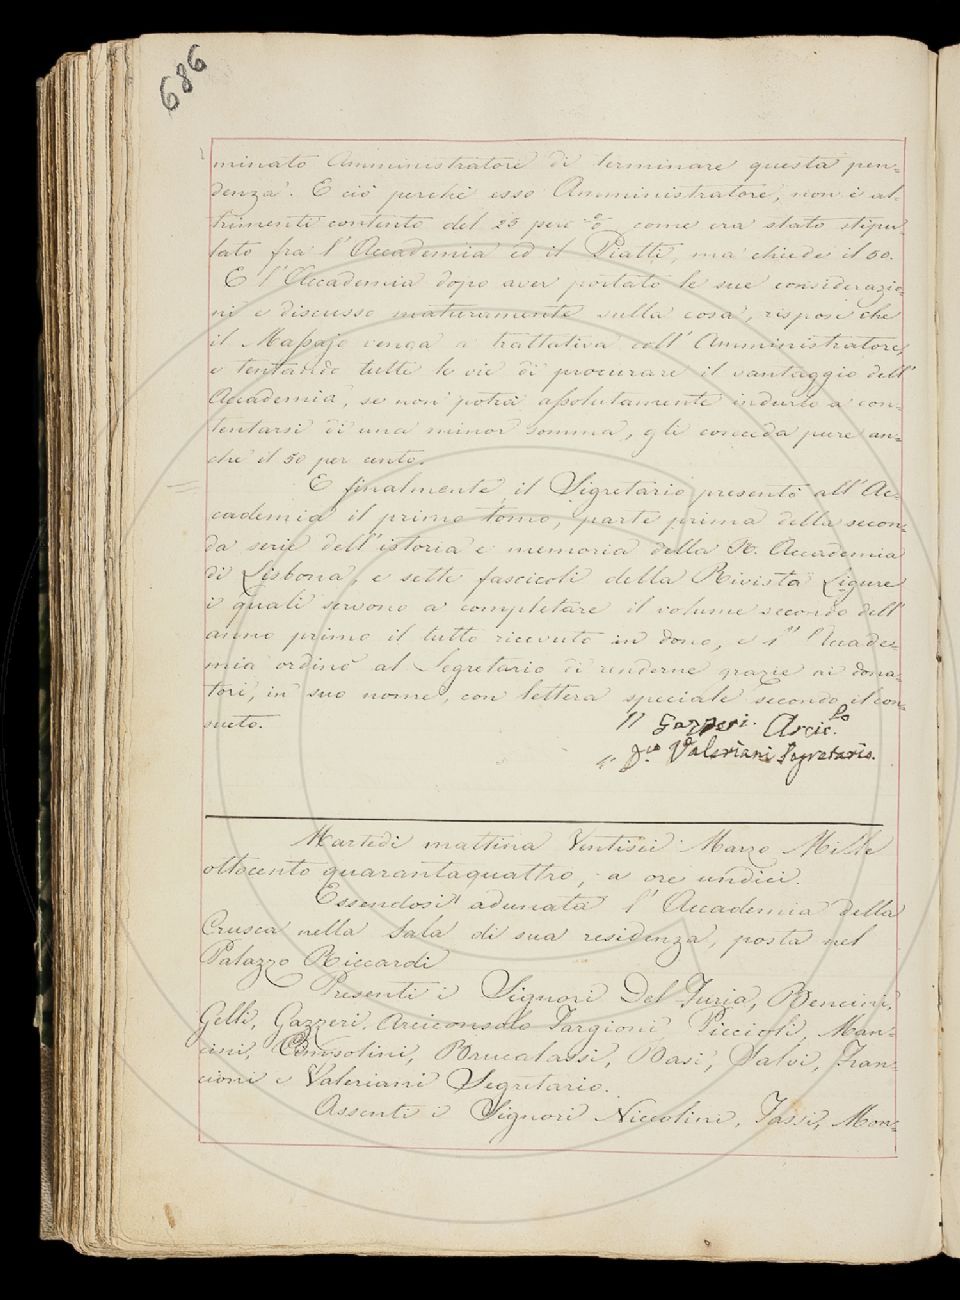 686
minato Amministratore di terminare questa pen=
denza. E ciò perchè esso Amministratore, non è al=
trimenti contento del 25 per % come era stato stipu=
lato fra l'Accademia ed il Piatti, ma chiede il 50.
E l'Accademia dopo aver portato le sue considerazio=
ni e discusso maturamente sulla cosa, rispose che
il Massajo venga a trattativa coll'Amministratore,
e tentando tutte le vie di procurare il vantaggio dell'
Accademia, se non potrà assolutamente indurlo a con=
tentarsi di una minor somma, gli conceda pure an=
che il 50 per cento.
E finalmente il Segretario presentò all'Ac=
cademia il primo tomo, parte prima della secon=
da serie dell'istoria e memoria della R. Accademia
di Lisbona, e sette fascicoli della Rivista Ligure
i quali servono a completare il volume secondo dell'
anno primo il tutto ricevuto in dono, e l'Accade=
mia ordinò al Segretario di renderne grazie ai dona=
tori, in suo nome, con lettera speciale secondo il con=
sueto.
Gazzeri. Arcic.lo
Valeriani Segretario.
Martedì mattina Ventisei Marzo Mille
ottocento quarantaquattro, a ore undici.
Essendosi adunata l'Accademia della
Crusca nella Sala di sua residenza, posta nel
Palazzo Riccardi
Presenti i Signori Del Furia, Bencini,
Gelli, Gazzeri Arciconsolo Targioni Piccioli, Man=
cini, Consolini, Brucalassi, Basi, Salvi, Fran=
cioni e Valeriani Segretario.
Assenti i Signori Niccolini, Tassi, Mon=